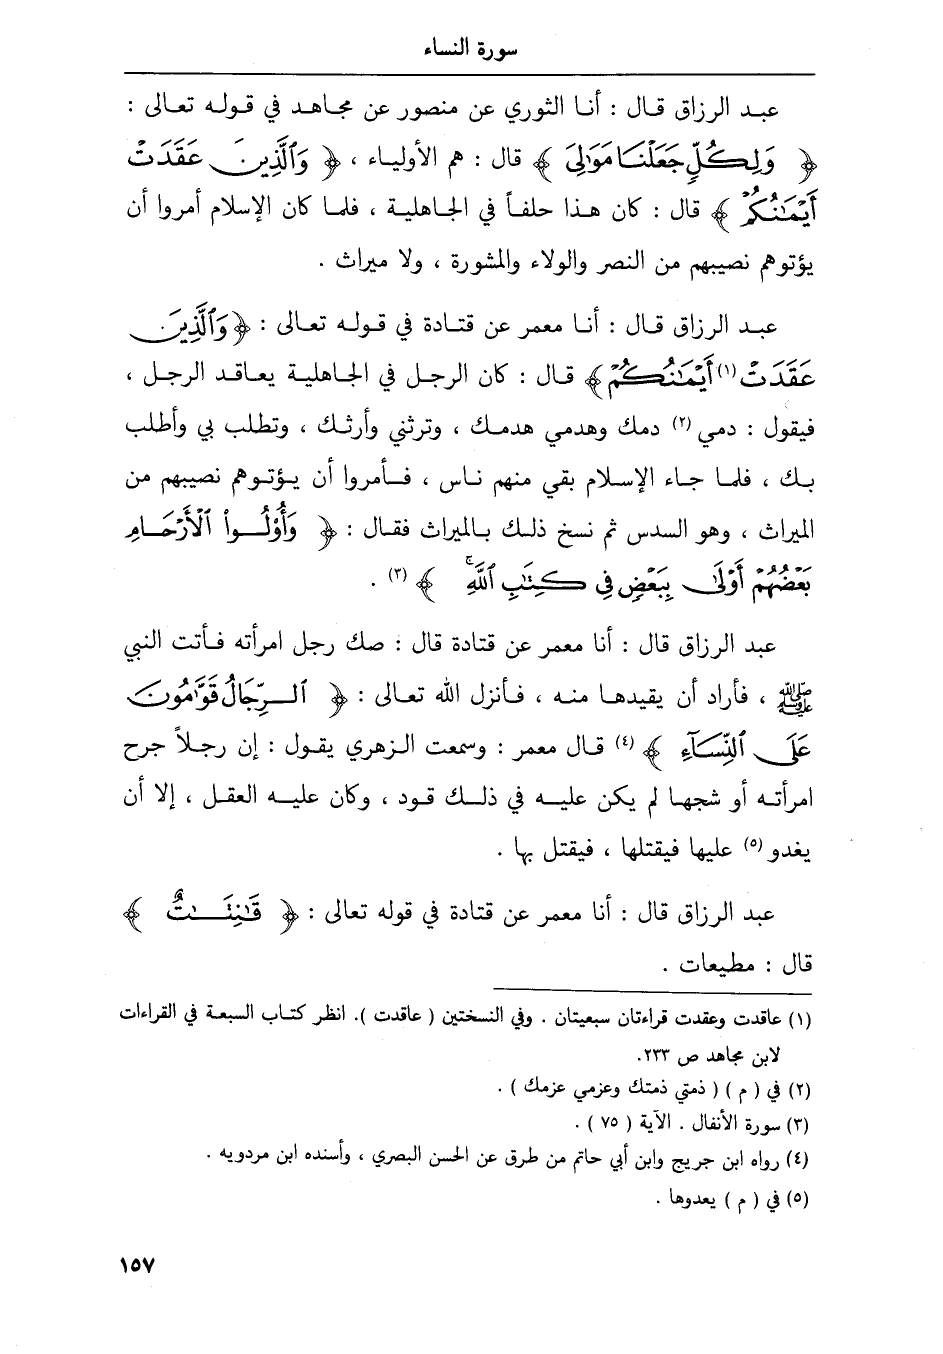 سورة النساء
عبد الرزاق قال : أنا الثوري عن منصور عن مجاهد في قوله تعالى :
﴿ وَلِكُلٍّ جَعَلْنَا مَوَٰلِىَ ﴾ قال : هم الأولياء ، ﴿ وَٱلَّذِينَ عَقَدَتْ
أَيْمَٰنُكُمْ ﴾ قال : كان هذا حلفاً في الجاهلية ، فلما كان الإسلام أمروا أن
يؤتوهم نصيبهم من النصر والولاء والمشورة ، ولا ميراث .
عبد الرزاق قال : أنا معمر عن قتادة في قوله تعالى : ﴿ وَٱلَّذِينَ
عَقَدَتْ (١) أَيْمَٰنُكُمْ ﴾ قال : كان الرجل في الجاهلية يعاقد الرجل ،
فيقول : دمي (٢) دمك وهدمي هدمك ، وترثني وأرثك ، وتطلب بي وأطلب
بك ، فلما جاء الإسلام بقي منهم ناس ، فأمروا أن يؤتوهم نصيبهم من
الميراث ، وهو السدس ثم نسخ ذلك بالميراث فقال : ﴿ وَأُوْلُواْ ٱلْأَرْحَامِ
بَعْضُهُمْ أَوْلَىٰ بِبَعْضٍ فِى كِتَٰبِ ٱللَّهِ ۚ ﴾ (٣) .
عبد الرزاق قال : أنا معمر عن قتادة قال : صك رجل امرأته فأتت النبي
ﷺ ، فأراد أن يقيدها منه ، فأنزل الله تعالى : ﴿ ٱلرِّجَالُ قَوَّٰمُونَ
عَلَى ٱلنِّسَآءِ ﴾ (٤) قال معمر : وسمعت الزهري يقول : إن رجلاً جرح
امرأته أو شجها لم يكن عليه في ذلك قود ، وكان عليه العقل ، إلا أن
يغدو (٥) عليها فيقتلها ، فيقتل بها .
عبد الرزاق قال : أنا معمر عن قتادة في قوله تعالى : ﴿ قَٰنِتَٰتٌ ﴾
قال : مطيعات .
(١) عاقدت وعقدت قراءتان سبعيتان . وفي النسختين ( عاقدت ). انظر كتاب السبعة في القراءات
لابن مجاهد ص ٢٣٣.
(٢) في ( م ) ( ذمتي ذمتك وعزمي عزمك ) .
(٣) سورة الأنفال . الآية ( ٧٥ ) .
(٤) رواه ابن جريج وابن أبي حاتم من طرق عن الحسن البصري ، وأسنده ابن مردويه .
(٥) في ( م ) يعدوها .
١٥٧